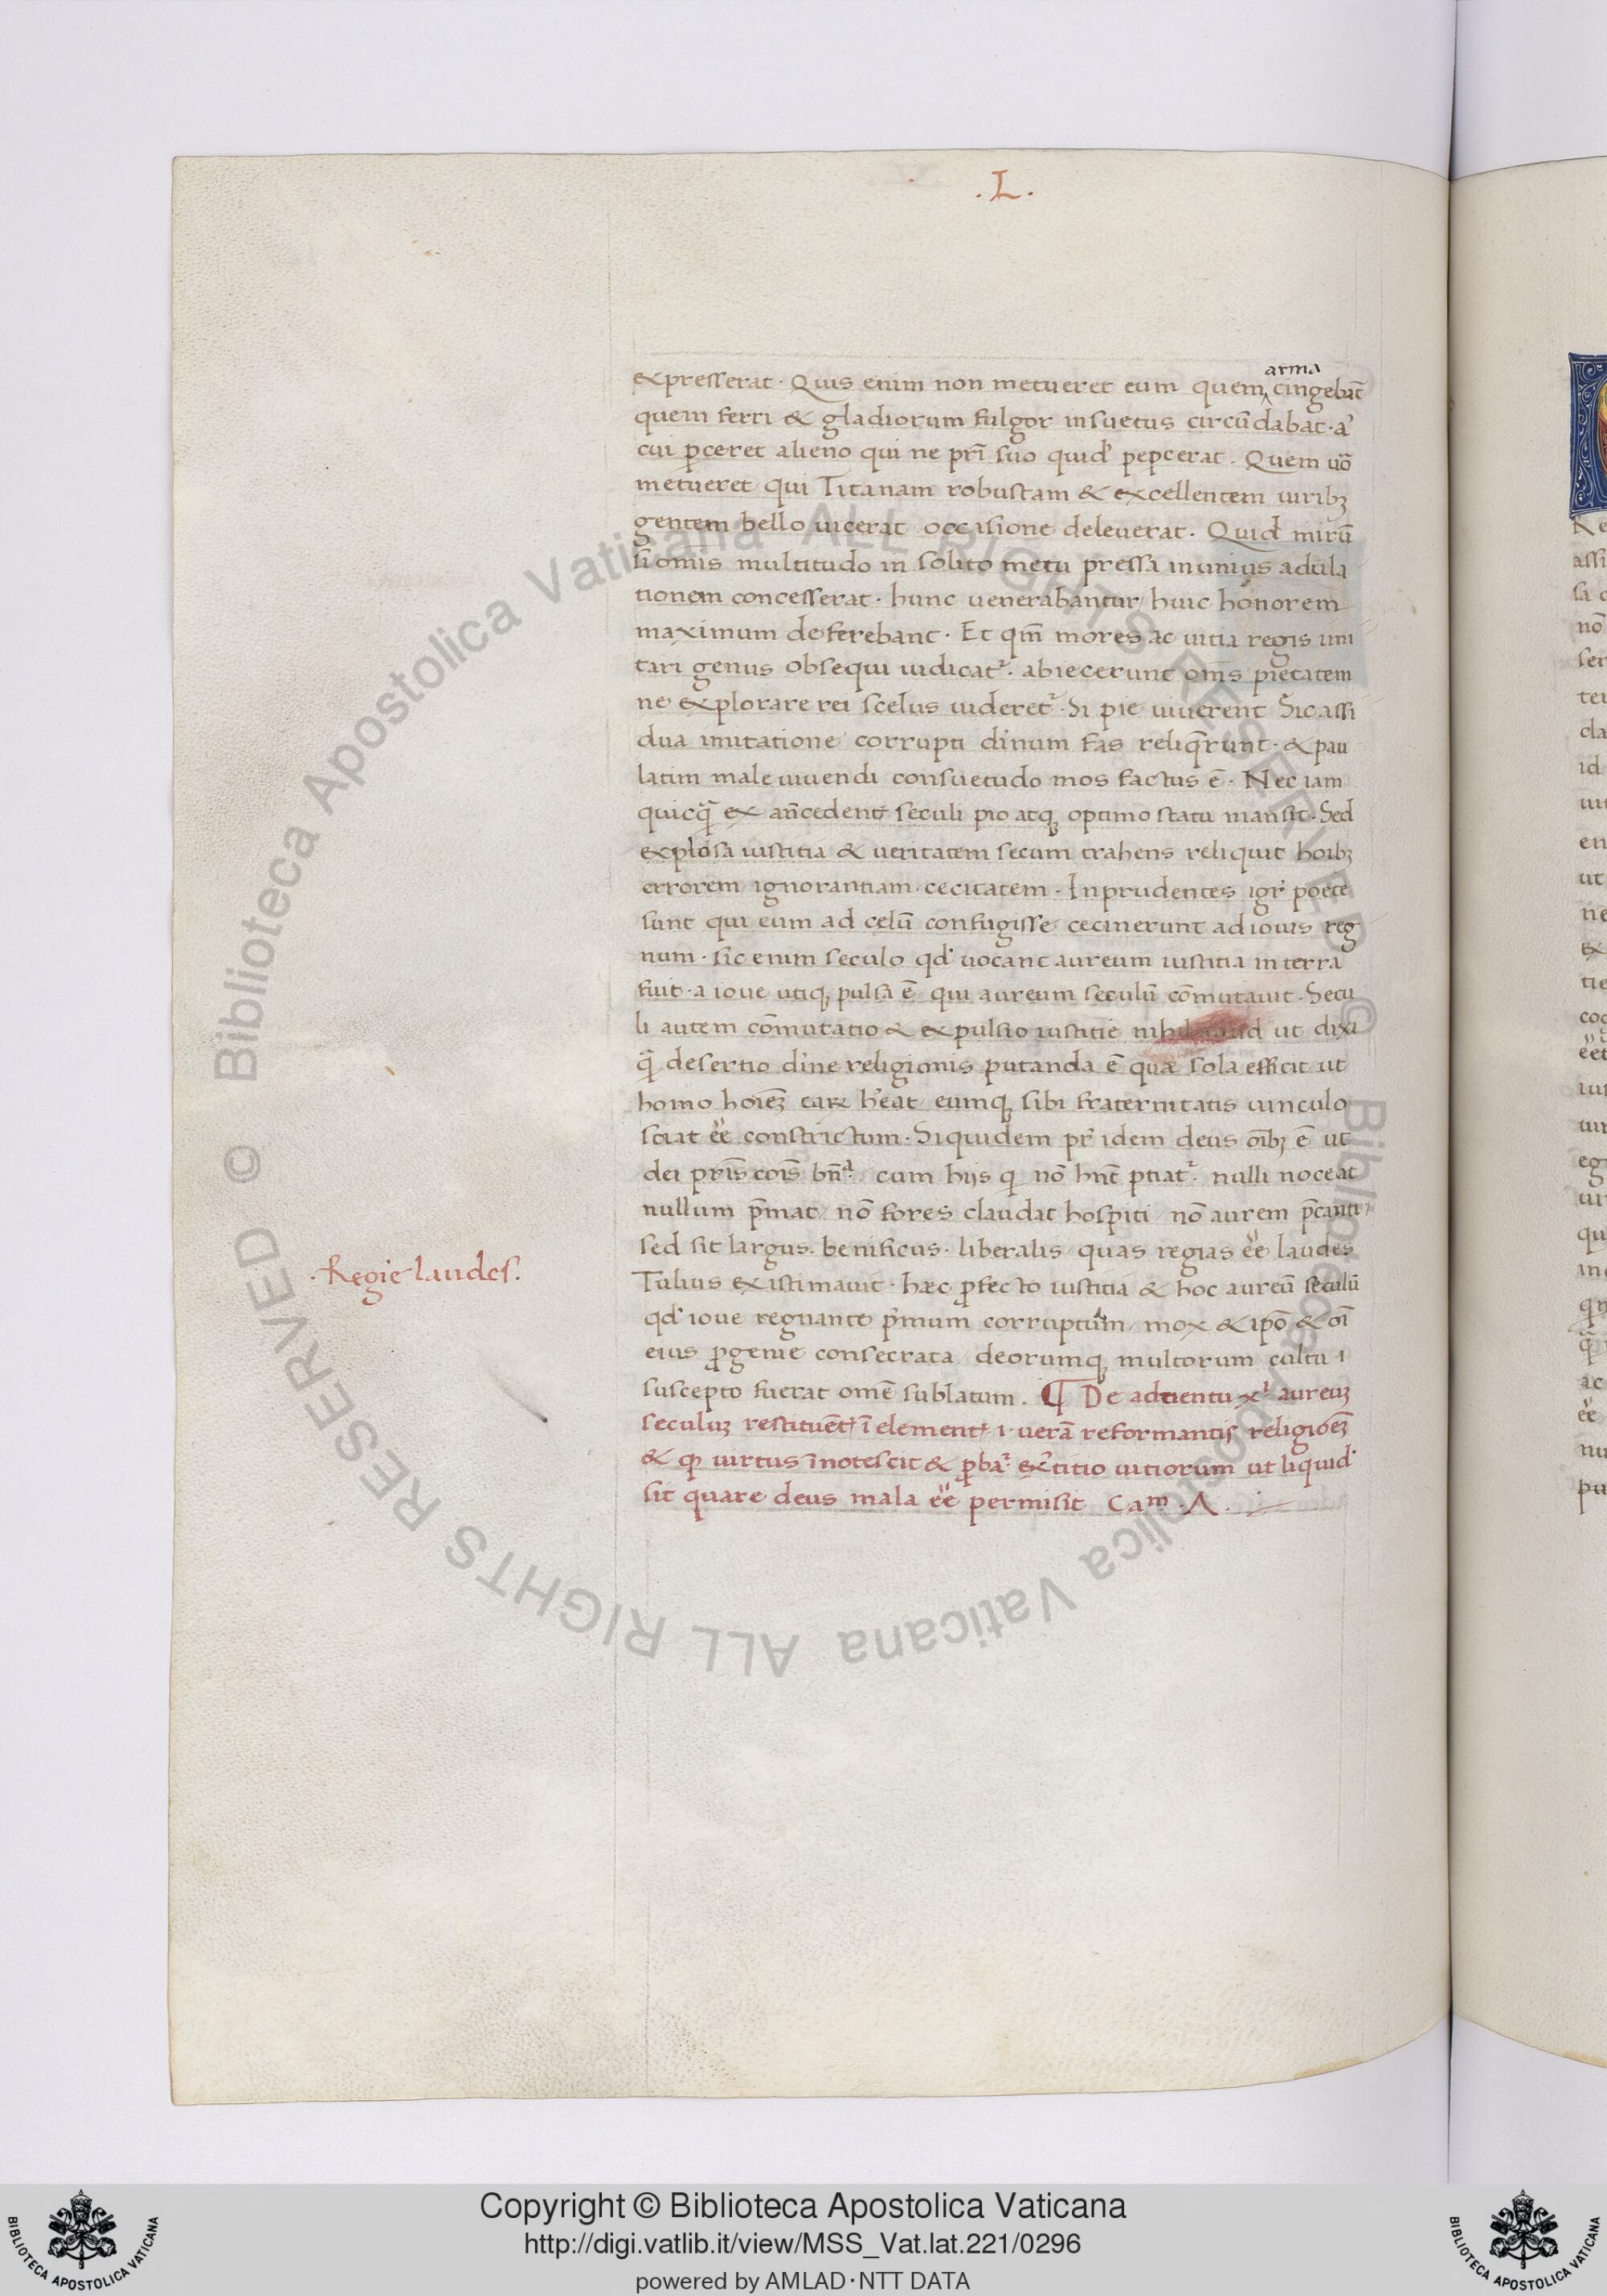 .L.
expresserat. Quis enim non metueret eum quem arma cingebāt
quem ferri & gladiorum fulgor insuetus circūdabat. a'
cui ꝑceret alieno qui ne pr̄i suo quid' pepcerat. Quem uo᷎
metueret qui Titanam robustam & excellentem uiribꝫ
gentem bello uicerat occisione deleuerat. Quid mirū
si omīs multitudo in solito metu pressa in unius adula
tionem concesserat. hunc uenerabantur huic honorem
maximum deferebant. Et qm̄ mores ac uitia regis imi
tari genus obsequii iudicat᷑. abiecerunt om̄s pietatem
ne explorare rei scelus uideret᷑. Si pie uiuerent Sic assi
dua imitatione corrupti diuinum fas reliq̄runt. & pau
latim male uiuendi consuetudo mos factus ē. Nec iam
quicq̄ ex an̄cedent seculi pio atqꝫ optimo statu mansit. Sed
explosa iustitia & ueritatem secum trahens reliquit hoibꝫ
errorem ignorantiam. cecitatem. Inprudentes igr̄ poete
sunt qui eum ad celū confugisse cecinerunt ad iouis reg
num. sic enim seculo qd' uocant aureum iustitia in terra
fuit. a ioue utiqꝫ pulsa ē qui aureum seculū cōmutauit. Secu
li autem cōmutatio & expulsio iustitie nihil aliud ut dixi
q̄ desertio diuine religionis putanda ē quae sola efficit ut
homo hoiēꝫ caꝝ h'eat eumqꝫ sibi fraternitatis uinculo
sciat eē constrictum. Siquidem pr̄ idem deus oībꝫ ē ut
dei pr̄is cōis bn̄ cum hijs q nō hn̄t ptiat᷑. nulli noceat
nullum p̄mat nō fores claudat hospiti nō aurem p̄canti
sed sit largus. benificus. liberalis quas regias eē laudes
Tulius existimauit. haec ꝓfecto iustitia & hoc aureū seculū
qd' ioue regnante p̄mum corruptum mox & ipo᷎ & oī
eius ꝓgenie consecrata deorumqꝫ multorum cultu
suscepto fuerat omē sublatum. ¶ De aduentu xi aureuꝫ
seculuꝫ restituēt ī element .i. uerā reformantis religiōeꝫ
& q uirtus īnotescit & ꝓba᷑ ex'titio uitiorum ut liquid'
sit quare deus mala eē permisit Cam. Λ.
.Regie laudes.
Copyright © Biblioteca Apostolica Vaticana
http://digi.vatlib.it/view/MSS_Vat.lat.221/0296
powered by AMLAD·NTT DATA
BIBLIOTECA APOSTOLICA VATICANA
BIBLIOTECA APOSTOLICA VATICANA
© Biblioteca Apostolica Vaticana ALL RIGHTS RESERVED © Biblioteca Apostolica Vaticana ALL RIGHTS RESERVED